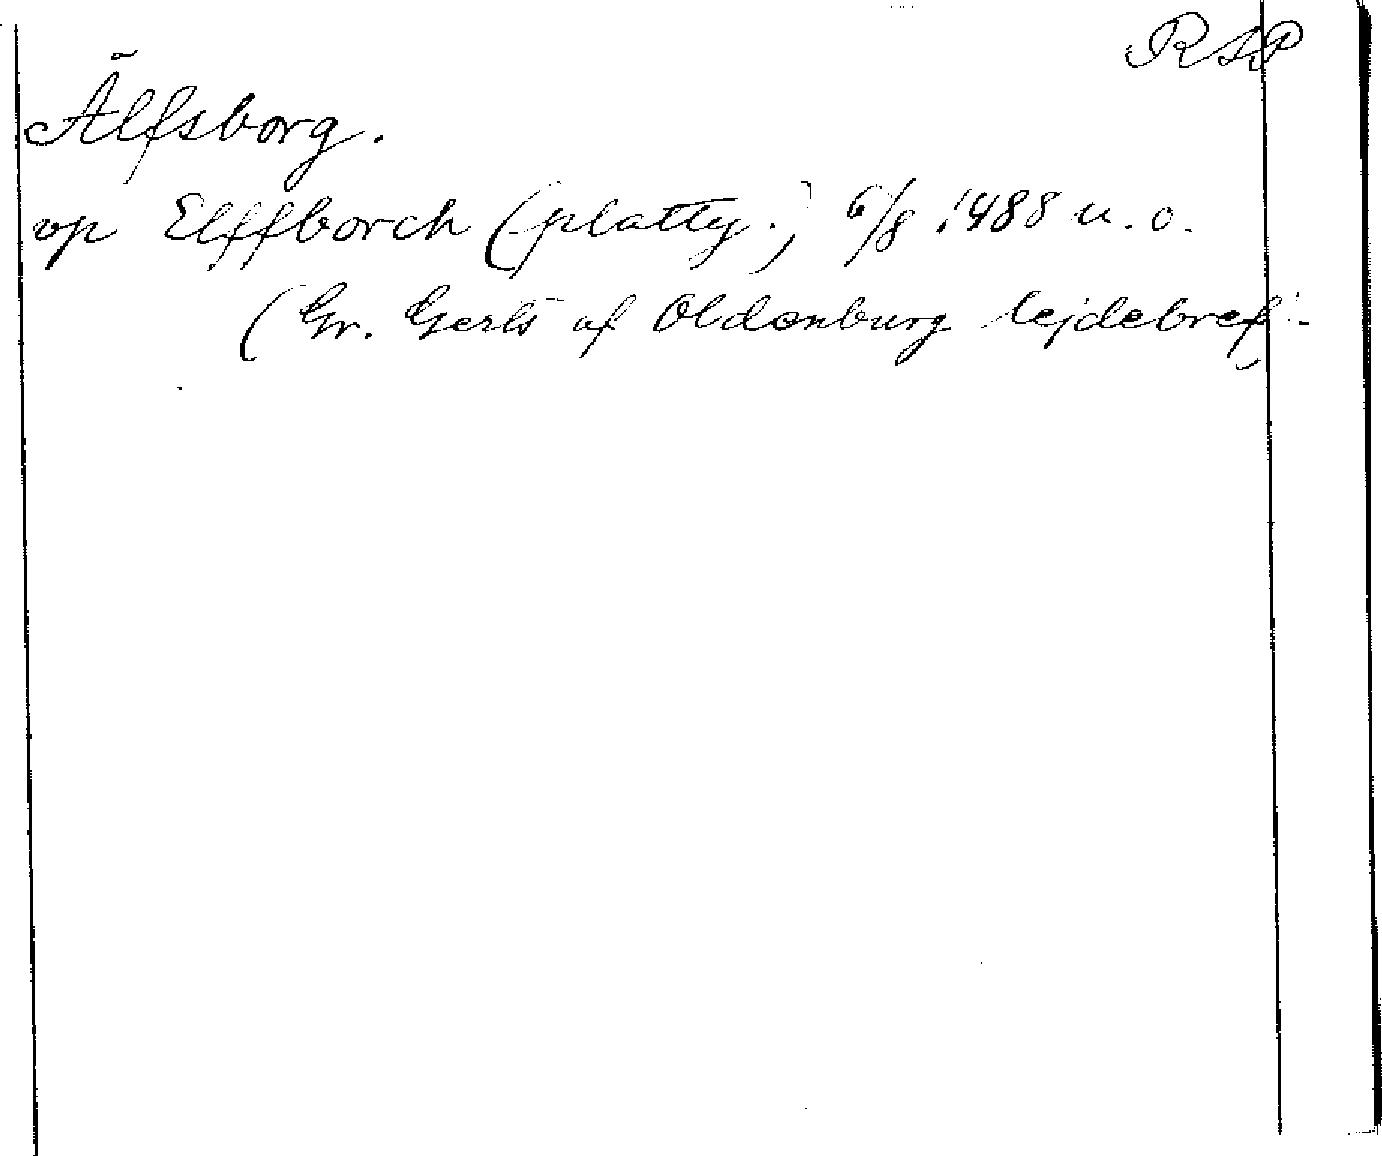 RAP
Älfsborg.
vp Elffborch (plattty.) 6/8 1488 u. o.
(Gr. Gerts af Oldenburg lejdebref)